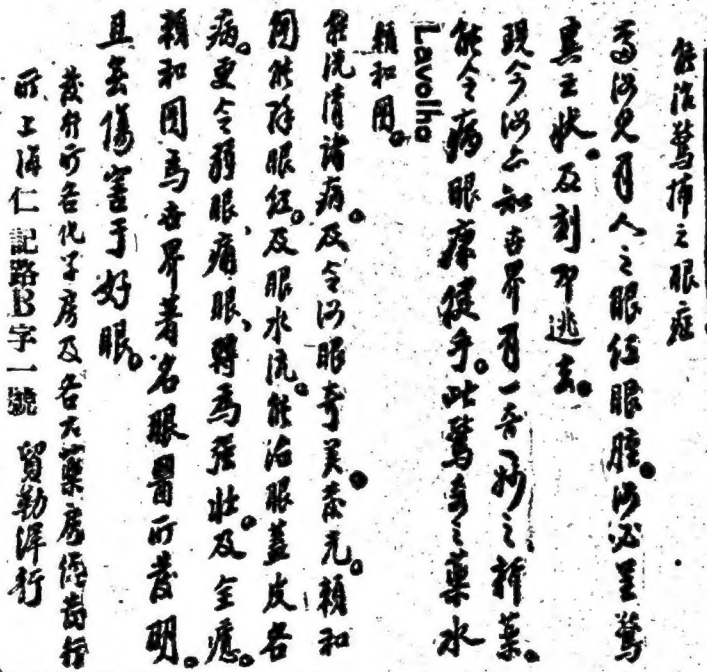 能治驚怖之眼症
當汝見有人之眼紅眼腫。汝必呈驚
異之狀。及刻即逃去。
現今汝亦知世界有一奇妙之新藥。
能令病眼康健乎。此驚奇之藥水
Lavolho
賴和囘。
能洗清諸病。及令汝眼奇美葆元。賴和
囘能除眼紅。及眼水流。能治眼蓋皮各
病。更令弱眼、痛眼、轉為強壯。及全癒。
賴和囘為世界著名眼醫所發明。
且無傷害于好眼。
發行所各化学房及各大藥房經
所上海仁記路B字一號 貿勒洋行